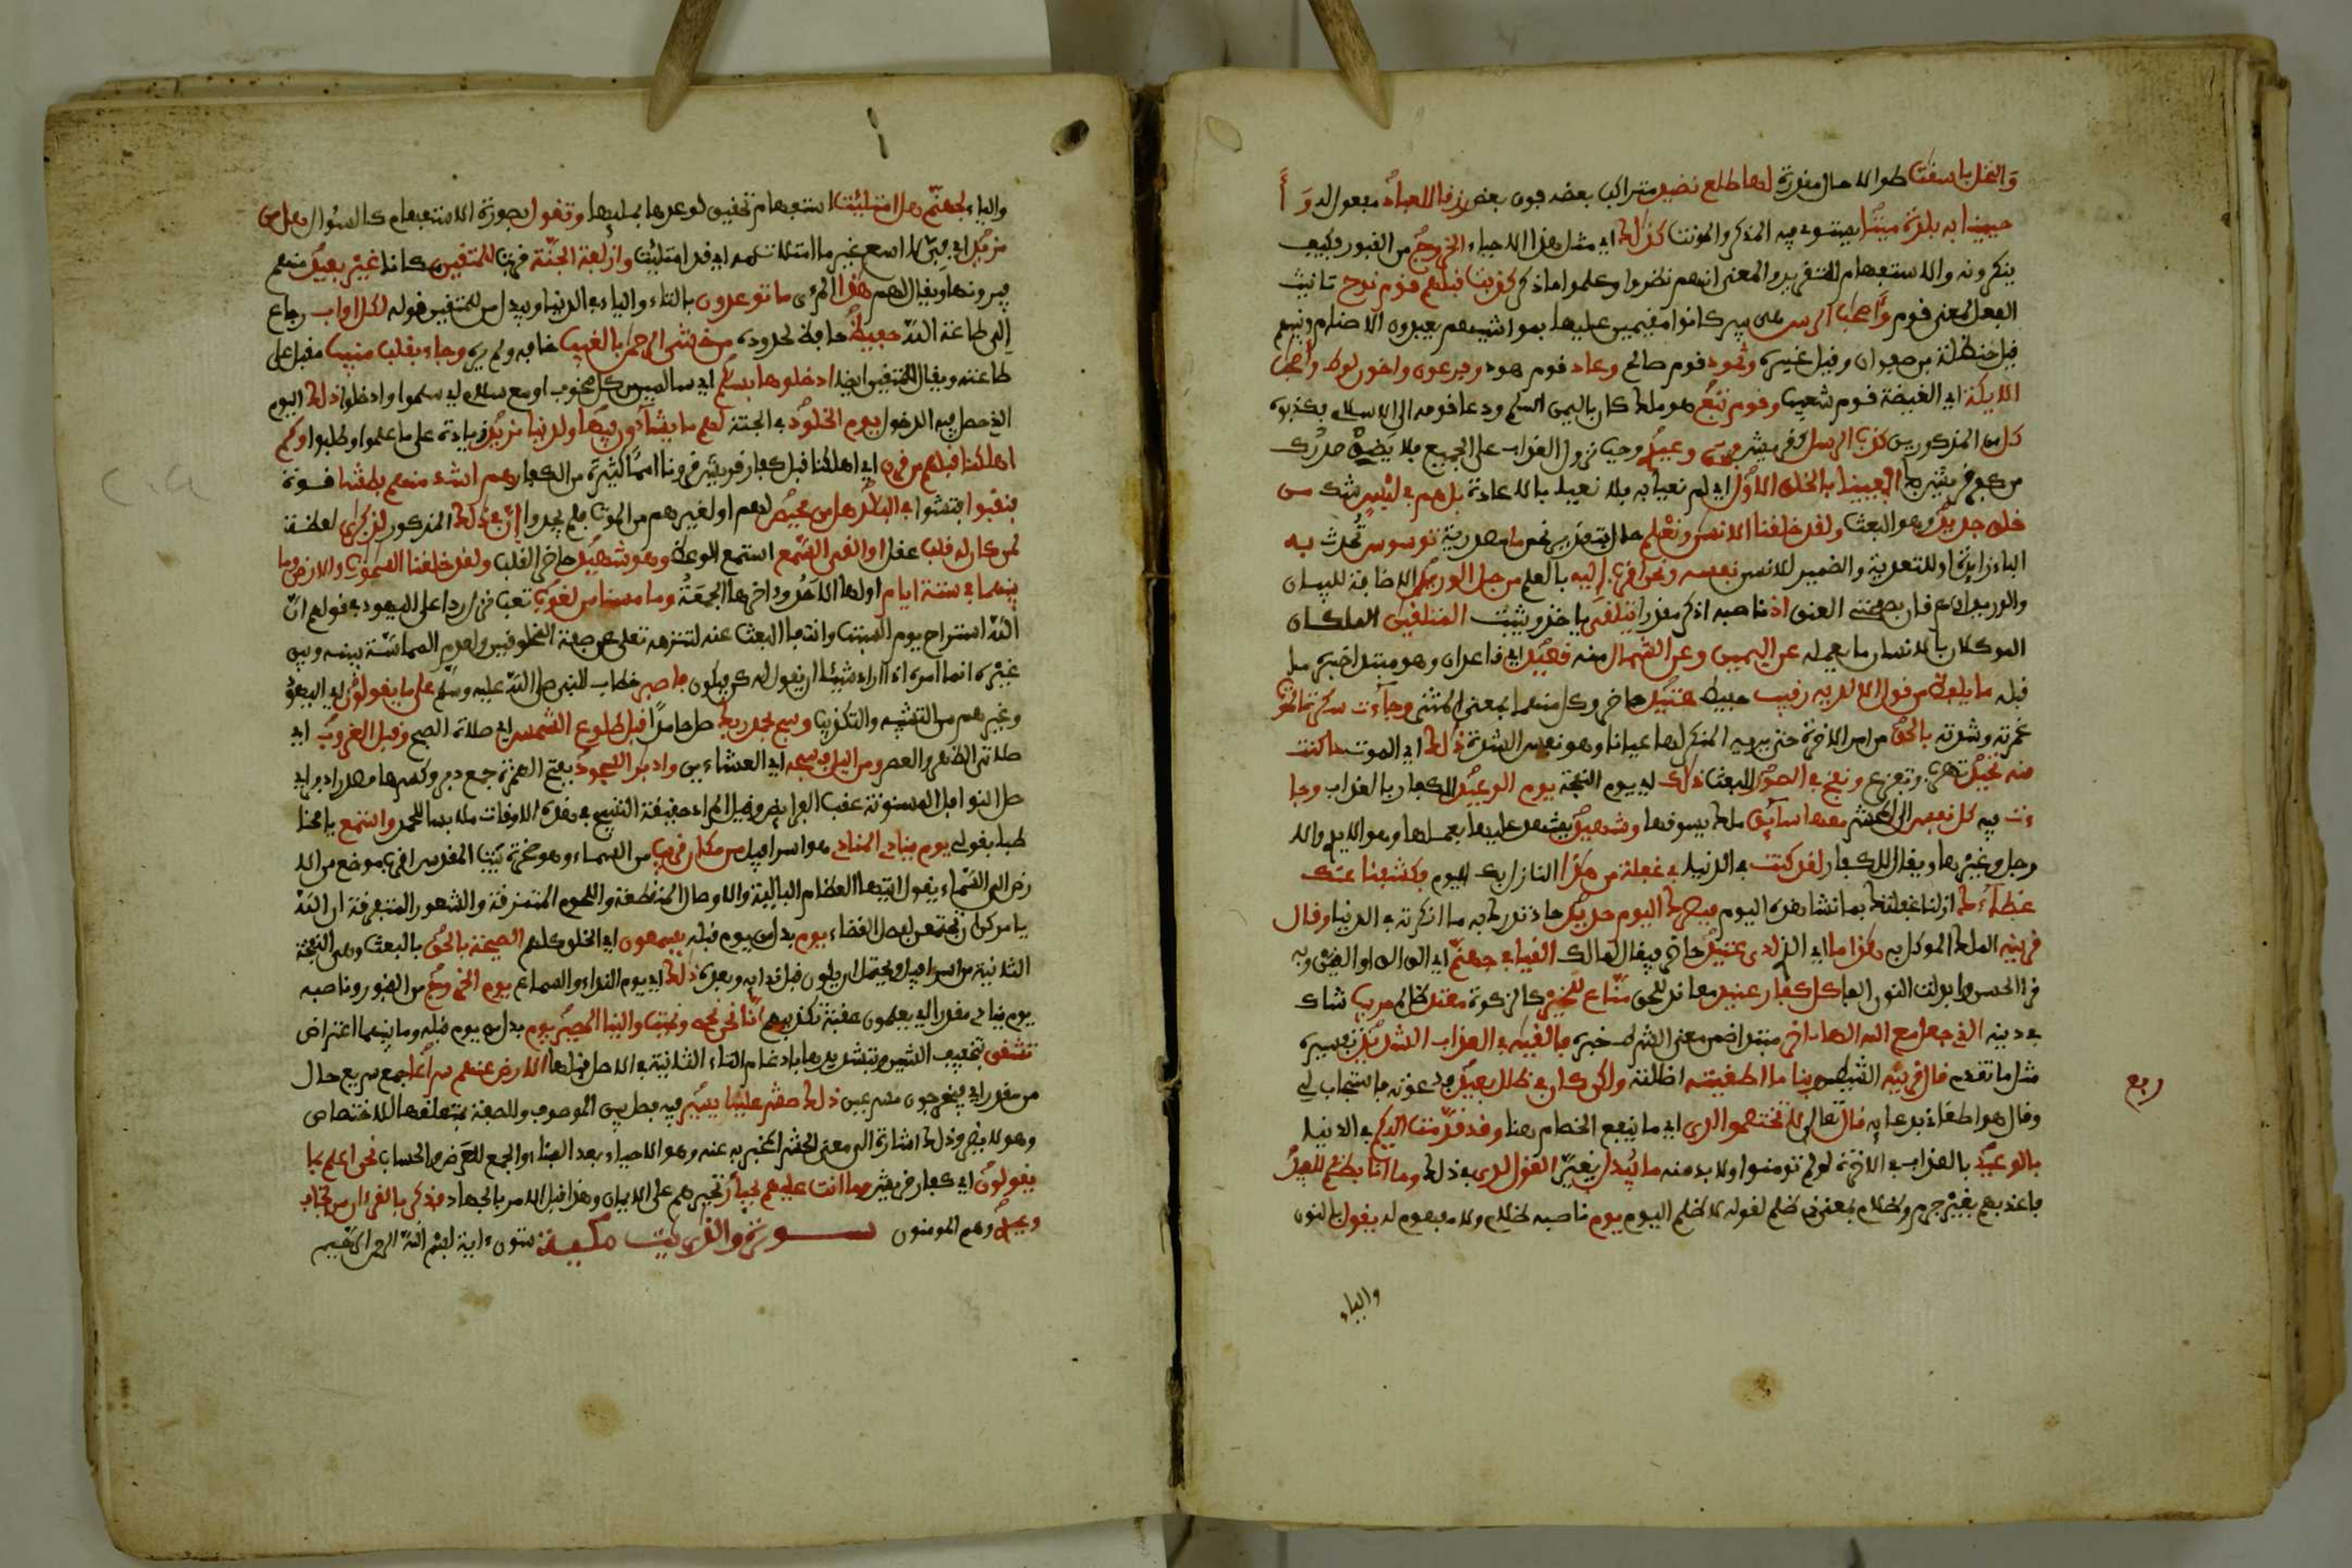 وَالنخل باسقت طوالا حال مقدرة لها طلع نضيد متراكب بعضه فوق بعض رزقا للعباد مفعول له وَأَ
حيينا به بلدة ميتا يستوي فيه المذكر والمونث كذلك اي مثل هذا الاحياء الخروج من القبور فكيف
ينكرونه والاستفهام للتقرير والمعنى انهم نظروا وعلموا ما ذكر كذبت قبلهم قوم نوح تانيث
الفعل لمعنى قوم وأصحاب الرس هي بير كانوا مقيمين عليها بمواشيهم يعبدون الاصنام ونبيهم
قيل حنظلة بن صفوان وقيل غيره وثمود قوم صالح وعاد قوم هود وفرعون واخون لوط وأصحاب
الايكة اي الغيضة قوم شعيب وقوم تبع هو ملك كان باليمن اسلم ودعا قومه الى الاسلام فكذبوه
كل من المذكورين كذب الرسل كقريش فحق وعيد وجب نزول العذاب على الجميع فلا يضق صدرك
من كفر قريش بك أفعيينا بالخلق الاول اي لم نعي به فلا نعيا بالاعادة بل هم في لبس شك من
خلق جديد وهو البعث ولقد خلقنا الانسن ونعلم حال بتقدير نحن ما مصدرية توسوس تحدث به
الباء زايدة او للتعدية والضمير للانسن نفسه ونحن اقرب إليه بالعلم من حبل الوريد الاضافة للبيان
والوريدان عرقان بصفحتي العنق اذ ناصبه اذكر مقدرا يتلقى ياخذ ويثبت المتلقين الملكان
الموكلان بالانسان ما يعمله عن اليمين وعن الشمال منه قعيد اي قاعدان وهو مبتدا خبره ما
قبله ما يلفظ من قول الا لديه رقيب حفيظ عتيد حاضر وكل منهما بمعنى المثنى وجآءت سكرة الموت
غمرته وشدته بالحق من امر الاخرة حتى يريه المنكر لها عيانا وهو نفس الشدة ذلك اي الموت ما كنت
منه تحيد تهرب وتفزع ونفخ في الصور للبعث ذلك اي يوم النفخة يوم الوعيد للكفار بالعذاب وجا
ءت فيه كل نفس الى المحشر معها سآيق ملك يسوقها وشهيد يشهد عليها بعملها وهو الايدي والا
رجل وغيرها ويقال للكفار لقد كنت في الدنيا في غفلة من هذا النازل بك اليوم فكشفنا عنك
غطآءك ازلنا غفلتك بما تشاهده اليوم فبصرك اليوم حديد حاد تدرك به ما انكرته في الدنيا وقال
قرينه الملك الموكل به هذا ما اي الذي لدي عتيد حاضر فيقال لمالك القيا في جهنم اي الق الق او القين وبه
قرا الحسن فابدلت النون الفا كل كفار عنيد معاند للحق مناع للخير كالزكوة معتد ظالم مريب شاك
في دينه الذي جعل مع الله الها ءاخر مبتدا ضمن معنى الشرط خبره فالقيه في العذاب الشديد تفسيره
مثل ما تقدم قال قرينه الشيطن ربنا ما اطغيته اضللته ولكن كان في ضلل بعيد فدعوته فاستجاب لي
وقال هو اطغاني بدعايه قال تعالى لا تختصموا لدي اي ما ينفع الخصام هنا وقد قدمت اليكم في الدنيا
بالوعيد بالعذاب في الاخرة لو لم تومنوا ولا بد منه ما يبدل يغير القول لدي في ذلك وما أنا بظلم للعبيد
فاعذبهم بغير جرم وظلام بمعنى ذي ظلم لقوله لا ظلم اليوم يوم ناصبه ظلام ولا مفهوم له يقول بالنون
والياء
ربع
والياء لجهنم هل امتلئت استفهام تحقيق لوعدها بمليها وتقول بصورة الاستفهام كالسؤال هل من
مزيد اي في لا اسع غير ما امتلات به اي قد امتلئت وازلفت الجنة قربت للمتقين مكانا غير بعيد منهم
فيرونها ويقال لهم هذا المرءى ما توعدون بالتاء والياء في الدنيا ويبدل من للمتقين قوله لكل اواب رجاع
إلى طاعة الله حفيظ حافظ لحدوده من خشي الرحمن بالغيب خافه ولم يره وجاء بقلب منيب مقبل على
طاعته ويقال للمتقين ايضا ادخلوها بسلم اي سالمين من كل مخوف او مع سلام اي سلموا وادخلوا ذلك اليوم
الذي حصل فيه الدخول يوم الخلود في الجنة لهم ما يشآءون فيها ولدينا مزيد زيادة على ما عملوا وطلبوا وكم
اهلكنا قبلهم من قرن اي اهلكنا قبل كفار قريش قرونا امما كثيرة من الكفار هم اشد منهم بطشا قوة
فنقبوا فتشوا في البلد هل من محيص لهم او لغيرهم من الموت فلم يجدوا إن في ذلك المذكور لذكرى لعظة
لمن كان له قلب عقل او القى السمع استمع الوعظ وهو شهيد حاضر القلب ولقد خلقنا السموت والارض وما
بينهما في ستة ايام اولها الاحد وءاخرها الجمعة وما مسنا من لغوب تعب نزل ردا على اليهود في قولهم ان
الله استراح يوم السبت وانتفا التعب عنه لتنزهه تعلى عن صفة المخلوقين ولعدم المماسة بينه وبين
غيره انما امره اذا اراد شيئا ان يقول له كن فيكون فاصبر خطاب للنبي صلى الله عليه وسلم على ما يقولون اي اليهود
وغيرهم من التشبيه والتكذيب وسبح بحمد ربك صل حامدا قبل طلوع الشمس اي صلاة الصبح وقبل الغروب اي
صلاتي الظهر والعصر ومن اليل فسبحه اي العشاءين وادبر السجود بفتح الهمزة جمع دبر وكسرها مصدر ادبر اي
صل النوافل المسنونة عقب الفرايض وقيل المراد حقيقة التسبيح في هذه الاوقات ملابسا للحمد واستمع يا مخا
طبا بقولي يوم يناد المناد هو اسرافيل من مكان قريب من السماء وهو صخرة بيت المقدس اقرب موضع من الا
رض الى السماء يقول ايتها العظام البالية والاوصال المتقطعة واللحوم المتمزقة والشعور المتفرقة ان الله
يامركن ان تجتمعن لفصل القضاء يوم بدل من يوم قبله يسمعون اي الخلق كلهم الصيحة بالحق بالبعث وهي النفخة
الثانية من اسرافيل ويحتمل ان يكون قبل ندايه وبعده ذلك اي يوم النداء والسماع يوم الخروج من القبور وناصبه
يوم يناد مقدرا اي يعلمون عقبة تكذيبهم إنا نحن نحي ونميت والينا المصير يوم بدل من يوم قبله وما بينهما اعتراض
تشقق بتخفيف الشين وتشديدها بادغام التاء الثانية في الاصل فيها الارض عنهم سراعا جمع سريع حال
من مقدر اي فيخرجون مسرعين ذلك حشر علينا يسير فيه فصل بين الموصوف والصفة بمتعلقها للاختصاص
وهو لا يضر وذلك اشارة الى معنى الحشر المخبر به عنه وهو الاحياء بعد الفناء والجمع للعرض والحساب نحن اعلم بما
يقولون اي كفار قريش وما انت عليهم بجبار تجبرهم على الايمان وهذا قبل الامر بالجهاد فذكر بالقرءان من يخاف
وعيد وهم المومنون سورة والذريت مكية ستون ءاية بسم الله الرحمن الرحيم